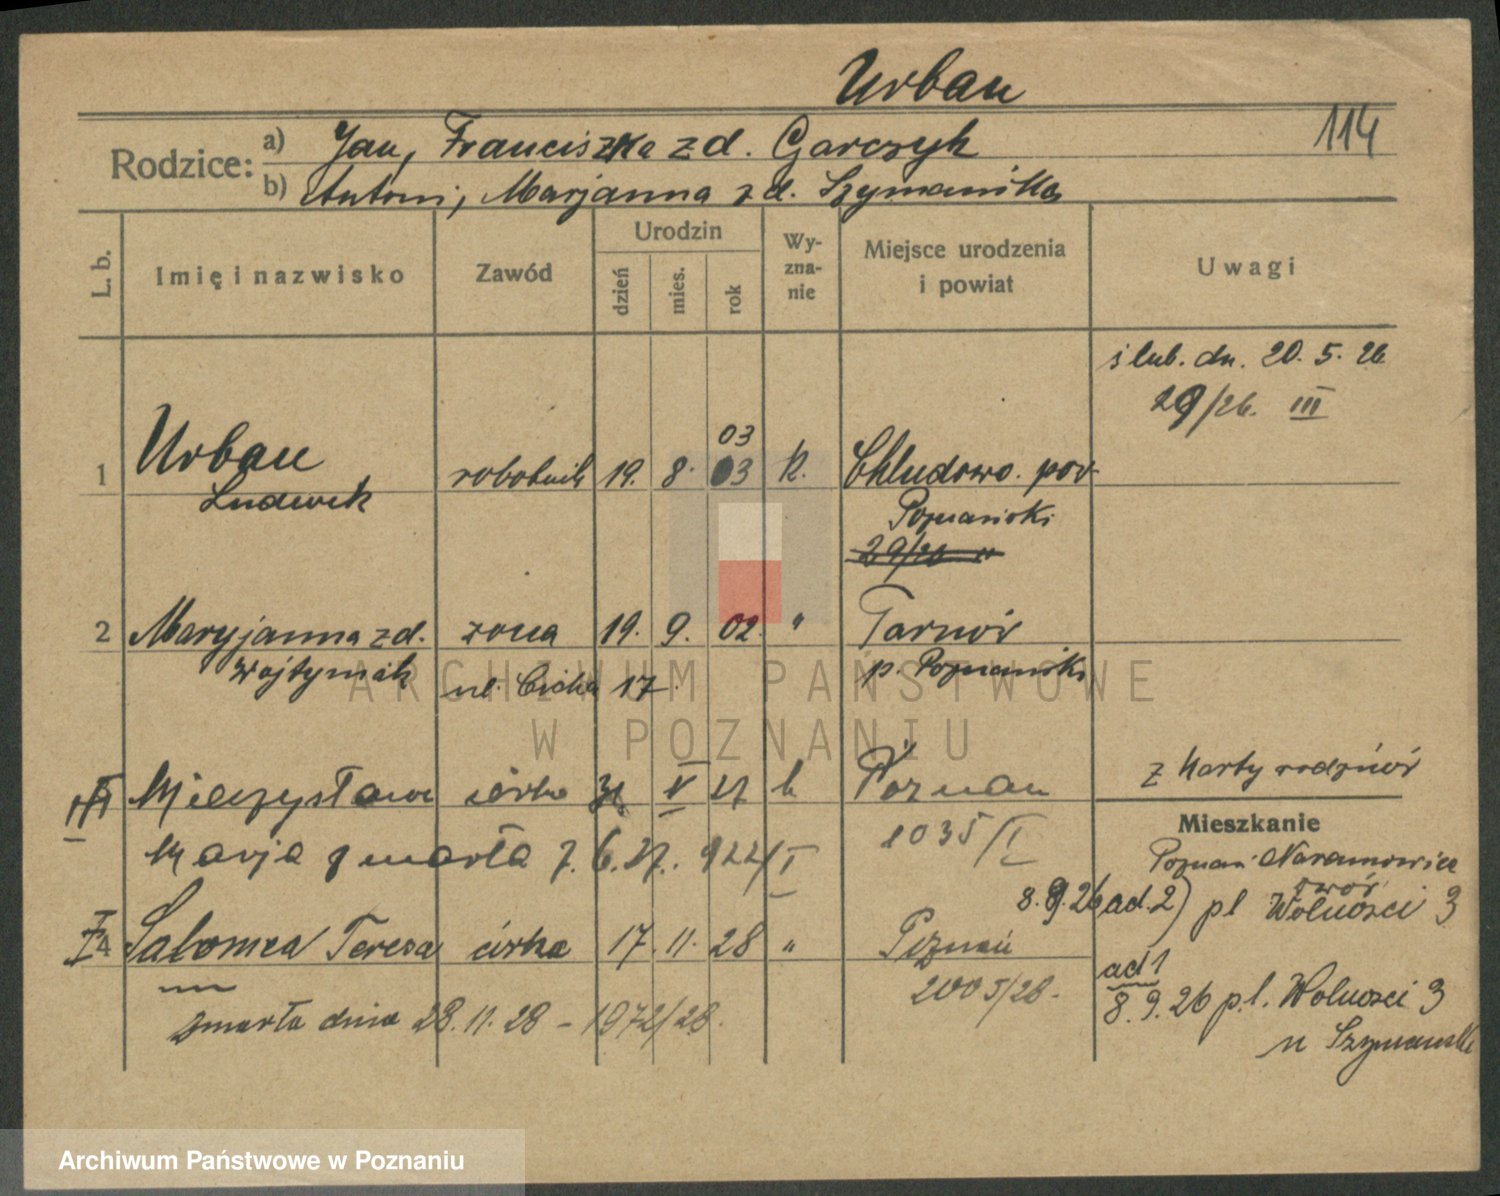 Urban
114
Rodzice:
a) Jan, Franciszka z d. Garczyk
b) Antoni, Marjanna z d. Szymańska
L. b.
Imię i nazwisko
Zawód
Urodzin
dzień
mies.
rok
Wy-
zna-
nie
Miejsce urodzenia
i powiat
Uwagi
ślub. dn. 20. 5. 26
29/26. III
03
1 Urban robotnik 19. 8. 03 k. Chludowo. pow.
Ludwik
Poznański
29/26
2 Maryjanna z d. żona 19. 9. 02. " Tarnów
Wojtyniak ul. Cicha 17. p. Poznański
z karty rodziców
III Mieczysława córka 31 V 27 k Poznań
1035/I
Marja zmarła 7. 6. 27. 922/I
Mieszkanie
Poznań Naramowice
dwór
8. 9. 26 ad. 2) pl Wolności 3
4 Salomea Teresa córka 17. 11. 28 " Poznań
2005/28.
zmarła dnia 28. 11. 28 - 1972/28.
ad 1
8. 9. 26 pl. Wolności 3
u Szymański
ARCHIWUM PAŃSTWOWE
W POZNANIU
Archiwum Państwowe w Poznaniu